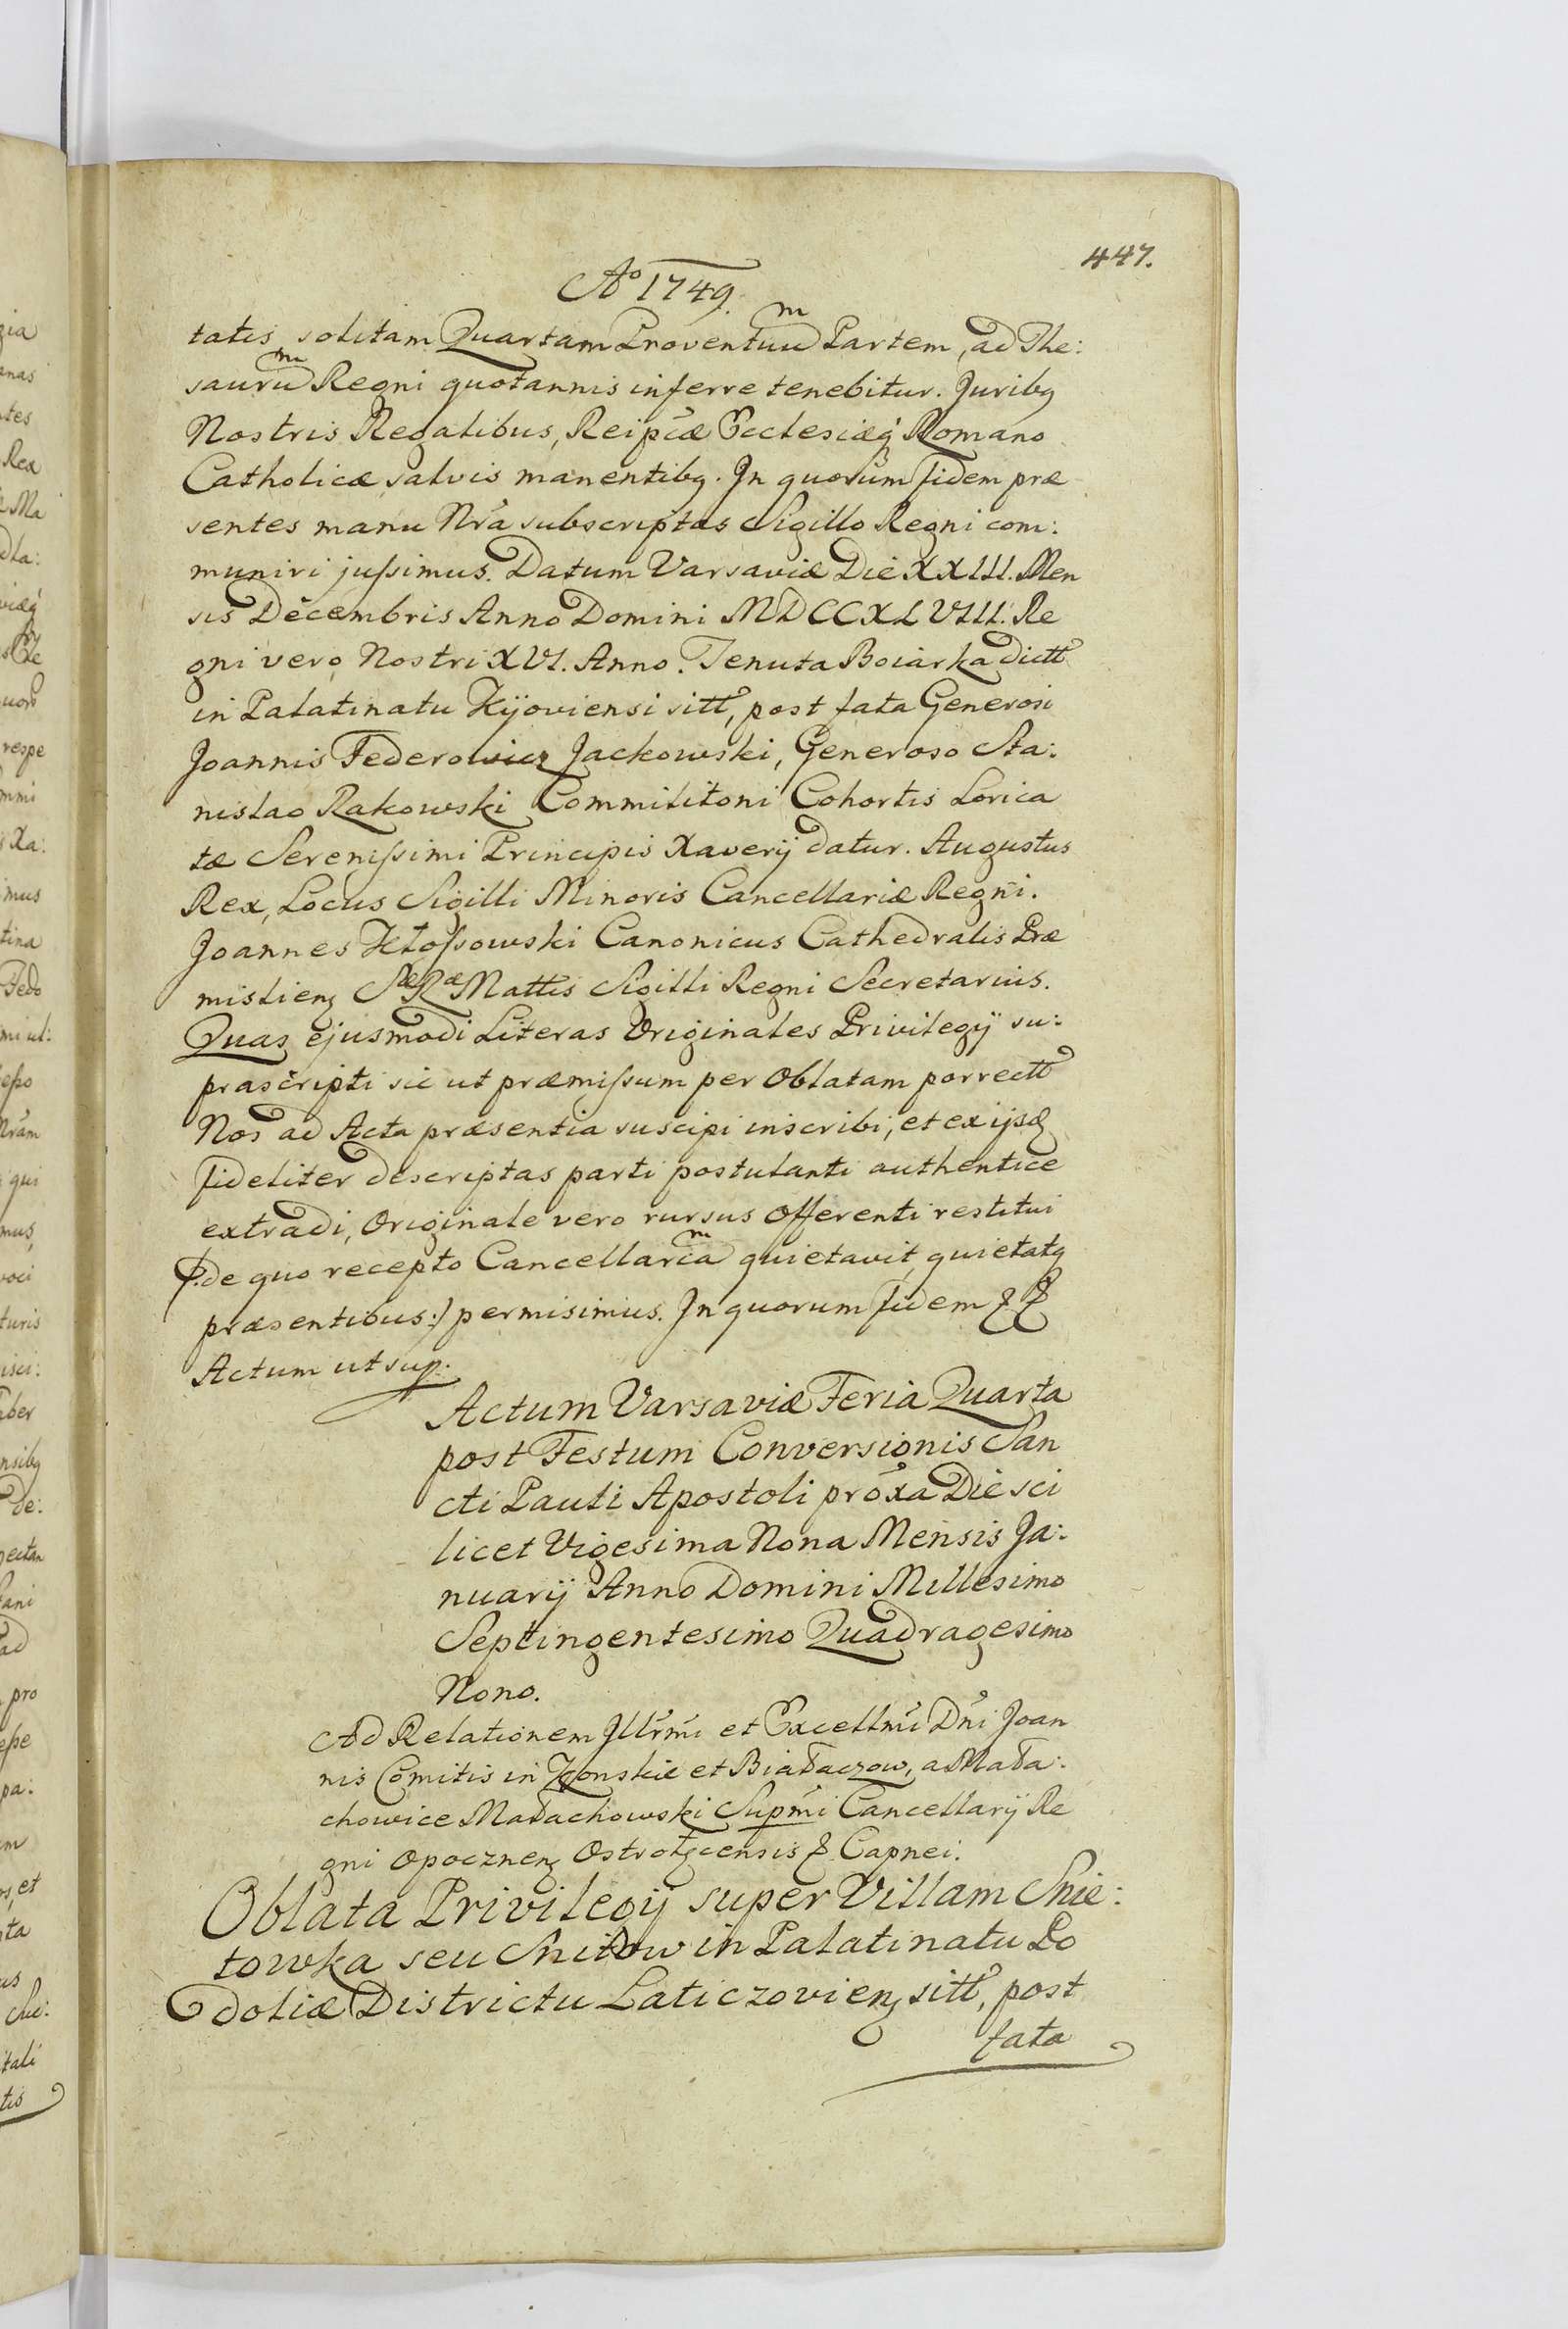 447.
Aº 1749.
tatis solitam Quartam Proventuũm Partem, ad The:
saurum Regni quotannis inferre tenebitur. Juribq
Nostris Regalibus, Reipcæ Ecclesiæq Romano
Catholicæ salvis manentibq. In quorum fidem præ
sentes manu Nrã subscriptas Sigillo Regni com:
muniri jussimus. Datum Varsaviæ Die XXIII. Men
sis Decembris Anno Domini MDCCXLVIII. Re
gni vero Nostri XVI. Anno. Tenuta Boiarka dictt
in Palatinatu Kijoviensi sitt, post fata Generosi
Joannis Federowicz Jackowski, Generoso Sta:
nislao Rakowski Commilitoni Cohortis Lorica
tæ Serenissimi Principis Xaverij datur. Augustus
Rex, Locus Sigilli Minoris Cancellariæ Regni.
Joannes Kłossowski Canonicus Cathedralis Præ
mislienz Sæ Ræ Mattis Sigilli Regni Secretarius.
Quas ejusmodi Literas Originales Privilegij su:
prascripti sic ut præmissum per Oblatam porrectt
Nos ad Acta præsentia suscipi inscribi, et ex ijsdz
fideliter descriptas parti postulanti authentice
extradi, Originale vero rursus Offerenti restitui
(:de quo recepto Cancellariam quietavit, quietatq
præsentibus:) permisimus. In quorum fidem & &
Actum ut sup:
Actum Varsaviæ Feria Quarta
post Festum Conversionis San
cti Pauli Apostoli proxa Die sci
licet Vigesima Nona Mensis Ja:
nuarij Anno Domini Millesimo
Septingentesimo Quadragesimo
Nono.
Ad Relationem Illrmi et Excellmi Dni Joan
nis Comitis in Konskie et Białaczow, a Mała:
chowice Małachowski Supmi Cancellarij Re
gni Opocznenz Ostrołęcensis & Capnei.
Oblata Privilegij super Villam Snie:
towka seu Snitow in Palatinatu Po
doliæ Districtu Laticzovienz sitt, post
fata